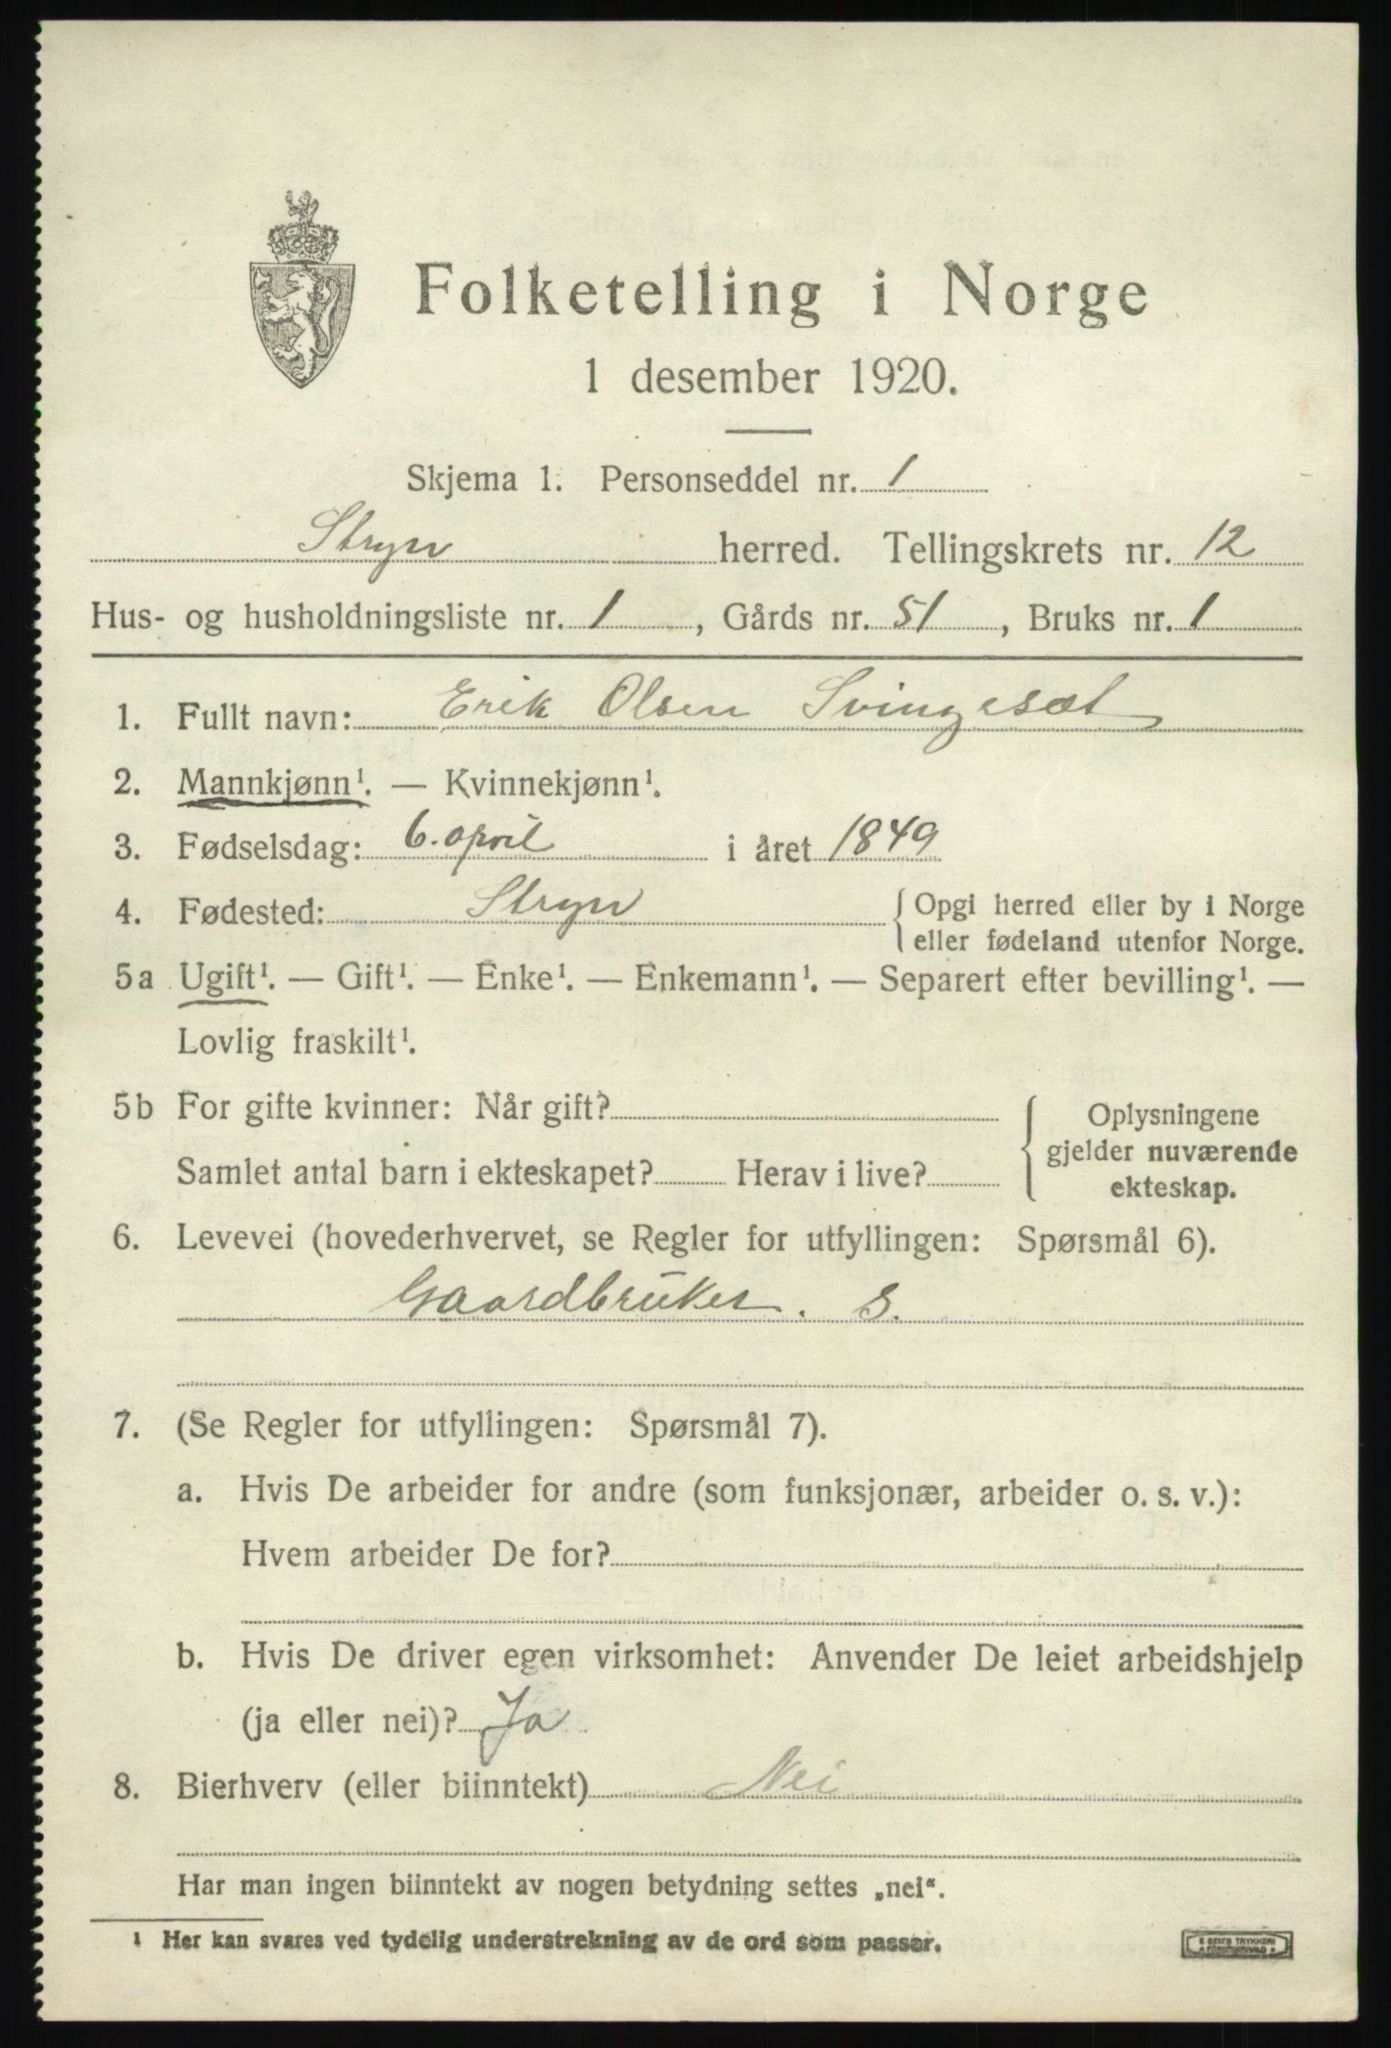 Folketelling i Norge
1 desember 1920.
Skjema 1. Personseddel nr. 1
Stryn herred. Tellingskrets nr. 12
Hus- og husholdningsliste nr. 1, Gårds nr. 51, Bruks nr. 1
1. Fullt navn: Erik Olsen Svingesæt
2. Mannkjønn¹. — Kvinnekjønn¹.
3. Fødselsdag: 6. april i året 1849
4. Fødested: Stryn { Opgi herred eller by i Norge
eller fødeland utenfor Norge.
5a Ugift¹. — Gift¹. — Enke¹. — Enkemann¹. — Separert efter bevilling¹. —
Lovlig fraskilt¹.
5b For gifte kvinner: Når gift?
Samlet antal barn i ekteskapet? Herav i live?
Oplysningene
gjelder nuværende
ekteskap.
6. Levevei (hovederhvervet, se Regler for utfyllingen: Spørsmål 6).
Gaardbruker. S.
7. (Se Regler for utfyllingen: Spørsmål 7).
a. Hvis De arbeider for andre (som funksjonær, arbeider o. s. v.):
Hvem arbeider De for?
b. Hvis De driver egen virksomhet: Anvender De leiet arbeidshjelp
(ja eller nei)? Ja
8. Bierhverv (eller biinntekt) Nei
Har man ingen biinntekt av nogen betydning settes „nei“.
¹ Her kan svares ved tydelig understrekning av de ord som passer.